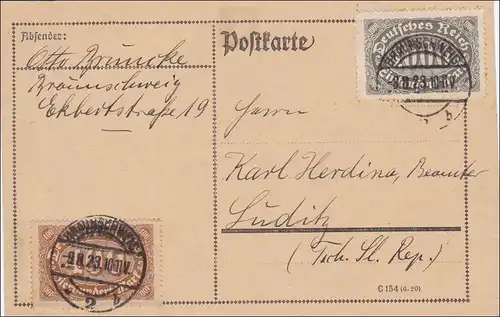 Absender:
Otto Brüncke
Braunschweig
Ekbertstraße 19
Postkarte
Deutsches Reich
BRAUNSCHWEIG
9.8.23.10-11V.
b
Herrn
Karl Herdina, Beamter
Luditz
(Tsch. Sl. Rep.)
BRAUNSCHWEIG
9.8.23.10-11V.
2 b
C 154 (d. 20)